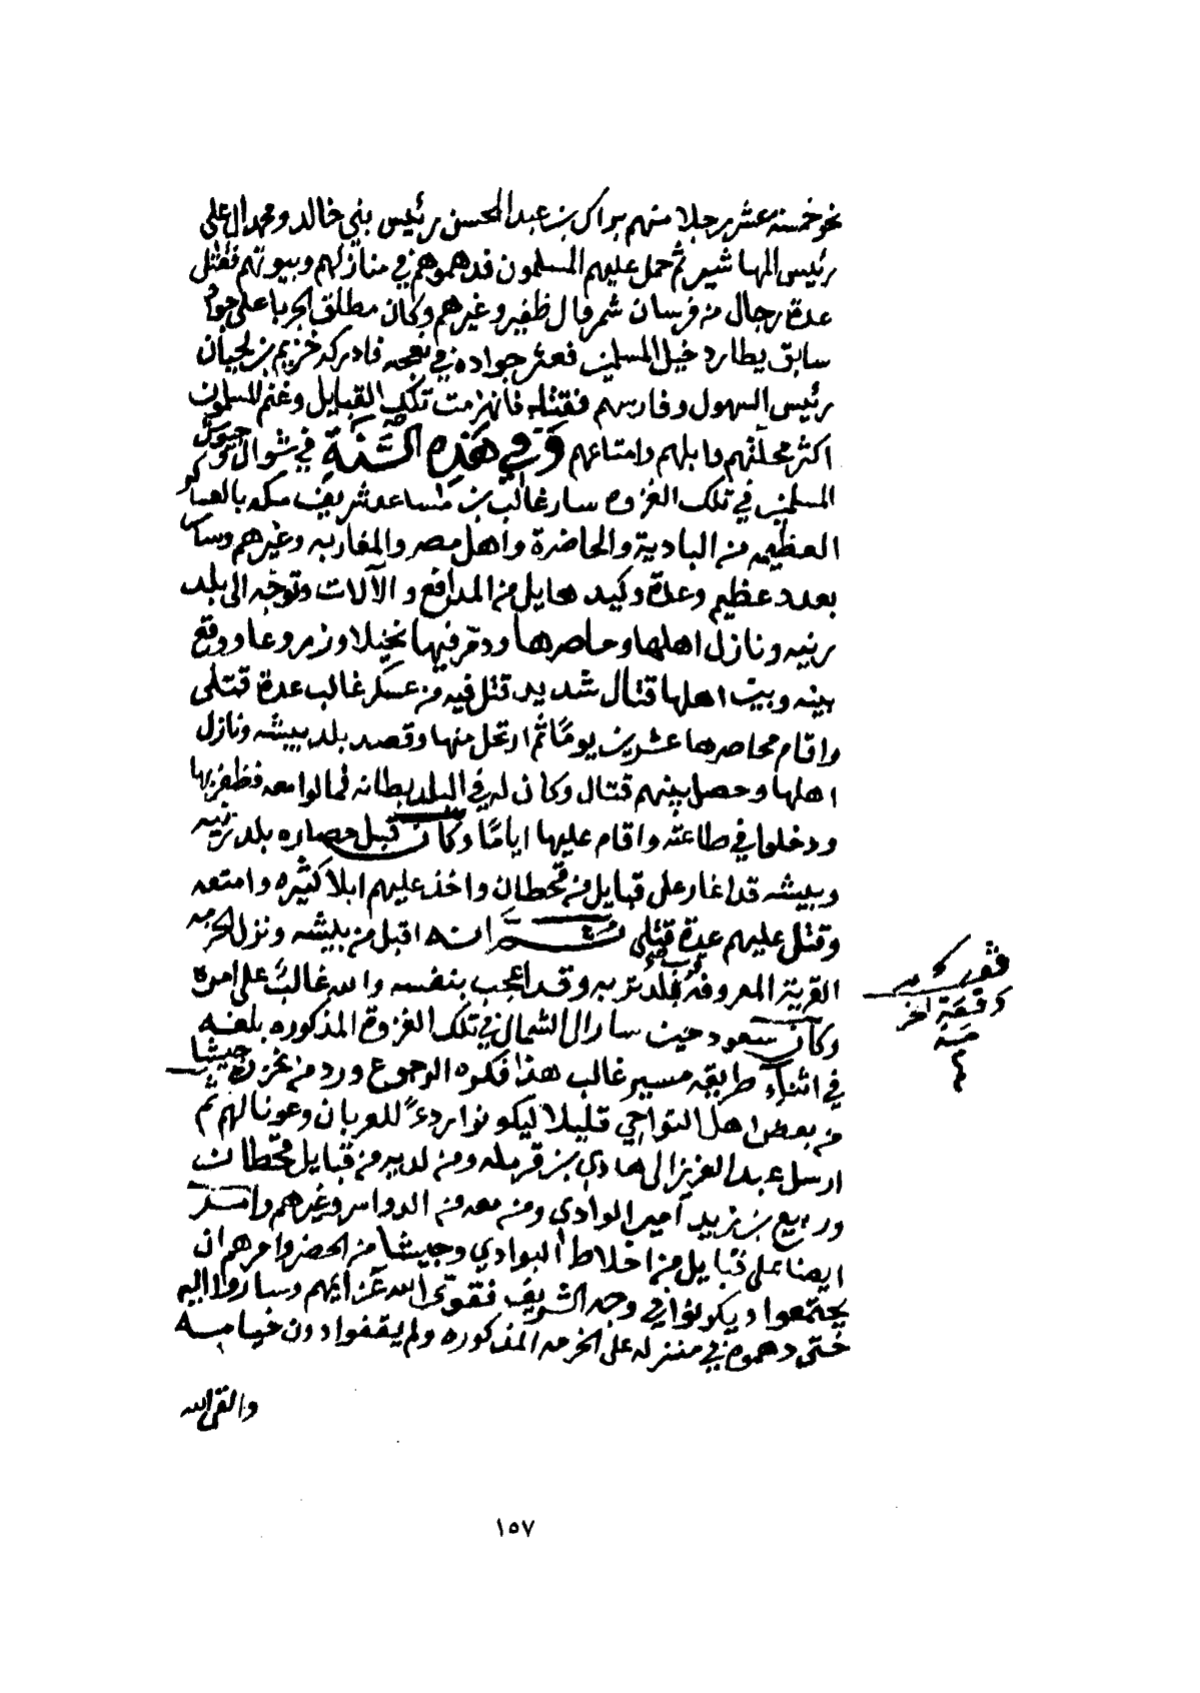 نحو خمسة عشر رجلا منهم براك بن عبد المحسن رئيس بني خالد ومحمد ال علي
رئيس المهاشير ثم حمل عليهم المسلمون فدهموهم في منازلهم وبيوتهم فقتل
عدة رجال من فرسان شمر وال ظفير وغيرهم وكان مطلق الجربا على جواد
سابق يطارد خيل المسلمين فعثر جواده في نعجه فادركه خزيم بن لحيان
رئيس السهول وفارسهم فقتله فانهزمت تلك القبايل وغنم المسلمون
اكثر محلتهم وابلهم وامتاعهم وفي هذه السنة في شوال
المسلمين في تلك الغزوه سار غالب بن مساعد شريف مكه بالعساكر
العظيمه من البادية والحاضرة واهل مصر والمغاربه وغيرهم وسار
بعدد عظيم وعدة وكيد هايل من المدافع والآلات وتوجه الى بلد
رنيه ونازل اهلها وحاصرها ودمر فيها نخيلا وزروعا ووقع
بينه وبين اهلها قتال شديد قتل فيه من عسكر غالب عدة قتلى
واقام محاصرها عشرين يوما ثم ارتحل منها وقصد بلد بيشه ونازل
اهلها وحصل بينهم قتال وكان له في البلد بطانه فمالوا معه فظفر بها
ودخلوا في طاعته واقام عليها اياما وكان قبل حصاره بلد رنيه
وبيشه قد اغار على قبايل من قحطان واخذ عليهم ابلا كثيره وامتعه
وقتل عليهم عدة قتلى ثم انه اقبل من بيشه ونزل الخرمه
القرية المعروفة قرب بلد تربه وقد اعجب بنفسه والله غالب على امره
وكان سعود حين سار الى الشمال في تلك الغزوة المذكوره بلغه
في اثناء طريقه مسير غالب هذا فكره الرجوع ورد من غزوه جيشا
من بعض اهل النواحي قليلا ليكونوا ردءً للعربان وعونا لهم ثم
ارسل عبد العزيز الى هادي بن قرمله ومن لديه من قبايل قحطان
وربيع بن زيد امير الوادي ومن معه من الدواسر وغيرهم وامر
ايضا على قبايل من اخلاط البوادي وجيشا من الحضر وامرهم ان
يجتمعوا ويكونوا في وجه الشريف فقوى الله عزايمهم وساروا اليه
حتى دهموه في منزله على الخرمه المذكوره ولم يقفوا دون خيامه
والقى الله
وقعة
١٥٧